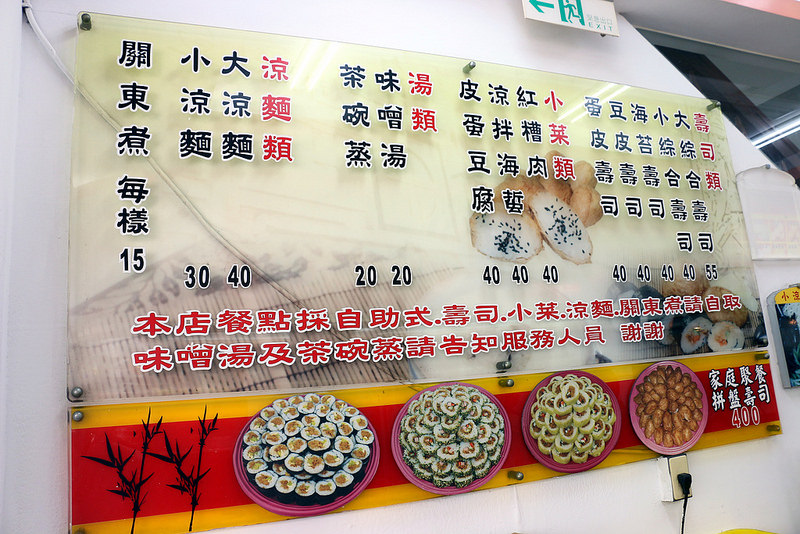 EXIT
壽司類
大綜合壽司 55
小綜合壽司 40
海苔壽司 40
豆皮壽司 40
蛋皮壽司 40
小菜類
紅糟肉 40
涼拌海蜇 40
皮蛋豆腐 40
湯類
味噌湯 20
茶碗蒸 20
涼麵類
大涼麵 40
小涼麵 30
關東煮 每樣 15
本店餐點採自助式.壽司.小菜.涼麵.關東煮請自取
味噌湯及茶碗蒸請告知服務人員 謝謝
家庭聚餐
拼盤壽司
400